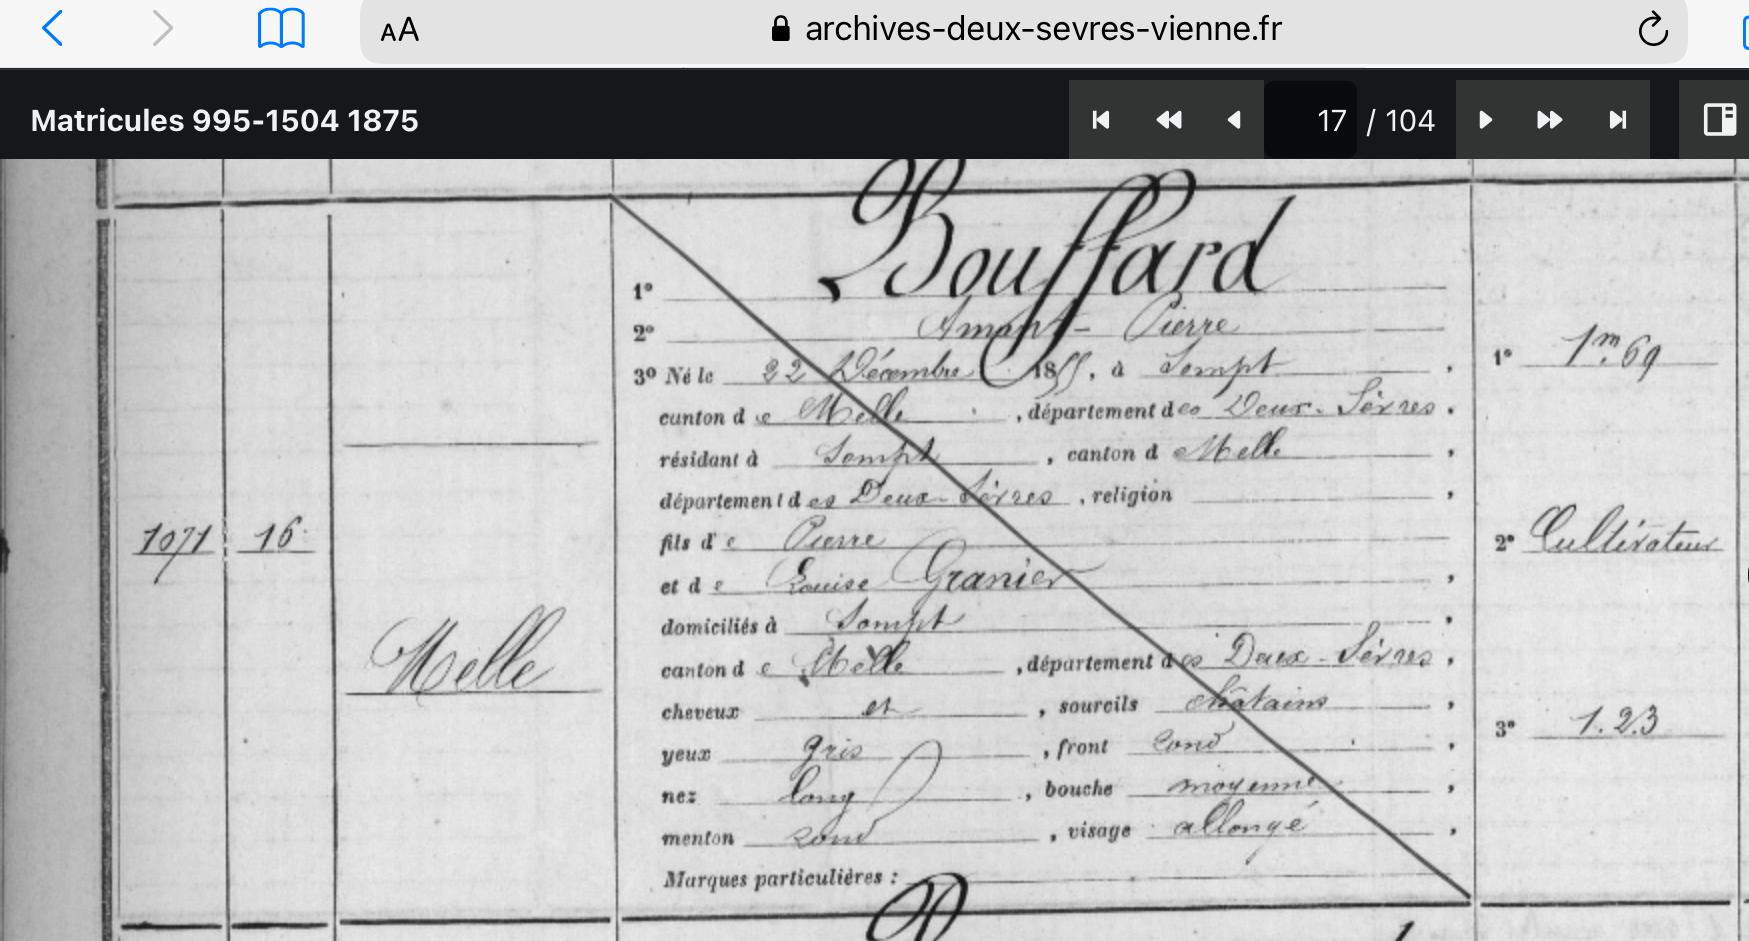 AA archives-deux-sevres-vienne.fr
Matricules 995-1504 1875 17 / 104
Bouffard
1º
2º Amant-Pierre
3º Né le 22 Décembre 1855, à Sompt,
canton de Melle, département des Deux-Sèvres.
résidant à Sompt, canton d Melle,
département des Deux-Sèvres, religion,
fils de Pierre
et de Louise Granier,
domiciliés à Sompt,
canton de Melle, département des Deux-Sèvres,
cheveux et, sourcils châtains,
yeux gris, front rond,
nez long, bouche moyenne,
menton rond, visage allongé,
Marques particulières :
1071 16
Melle
1º 1m.69
2º Cultivateur
3º 1.2.3